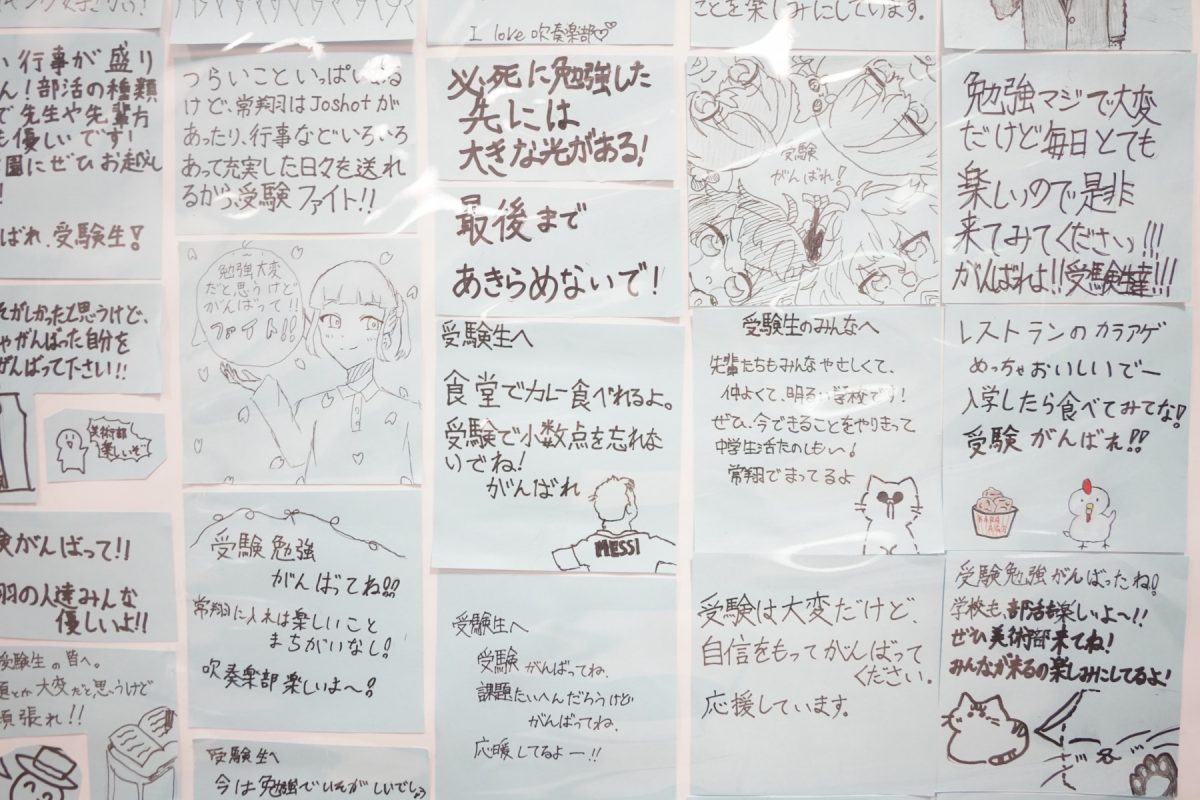 行事が盛り
ん！部活の種類
で先生や先輩方
も優しいです！
園にぜひお越し
!
ばれ、受験生!
そがしかったと思うけど、
がんばった自分を
がんばって下さい!!
美術部
楽しいぞ
験がんばって!!
羽の人達みんな
優しいよ!!
受験生の皆へ。
大変だと思うけど
頑張れ!!
つらいこといっぱいある
けど、常翔はJoshotが
あったり、行事などいろいろ
あって充実した日々を送れ
るから、受験ファイト!!
勉強大変
だと思うけど
がんばって!!
ファイト!!
受験勉強
がんばってね!!
常翔に入れは楽しいこと
まちがいなし!
吹奏楽部楽しいよ〜!
受験生へ
今は勉強でいそがしいでしょう
I love 吹奏楽部♡
必死に勉強した
先には
大きな光がある!
最後まで
あきらめないで!
受験生へ
食堂でカレー食べれるよ。
受験で小数点を忘れな
いでね!
がんばれ
MESSI
受験生へ
受験がんばってね。
課題たいへんだろうけど
がんばってね。
応援してるよー!!
ことを楽しみにしています。
受験
がんばれ!
受験生のみんなへ
先輩たちもみんなやさしくて、
仲よくて、明るい学校です!
ぜひ、今できることをやりきって
中学生活たのしもい!
常翔でまってるよ
受験は大変だけど、
自信をもってがんばって
ください。
応援しています。
勉強マジで大変
だけど毎日とても
楽しいので是非
来てみてください!!!
がんばれよ!!受験生達!!!
レストランのカラアゲ
めっちゃおいしいでー
入学したら食べてみてな!
受験がんばれ!!
KARA
AGE
受験勉強がんばったね!
学校も、部活も楽しいよ〜!!
ぜひ美術部来てね!
みんなが来るの楽しみにしてるよ!